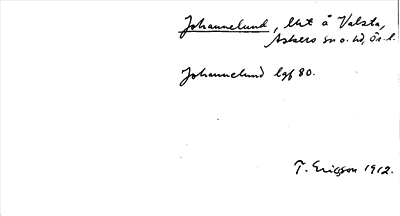 Johannelund, lht å Valsta,
Askers sn o. hd, Ör. l.
Johannelund lgf 80.
T. Ericsson 1912.